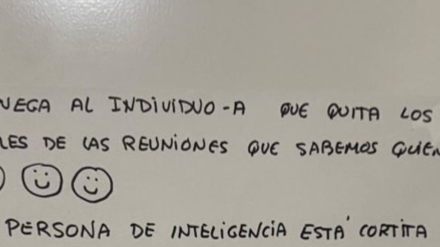 AL INDIVIDUO-A QUE QUITA LOS
DE LAS REUNIONES QUE SABEMOS
PERSONA DE INTELIGENCIA ESTÁ CORTITA